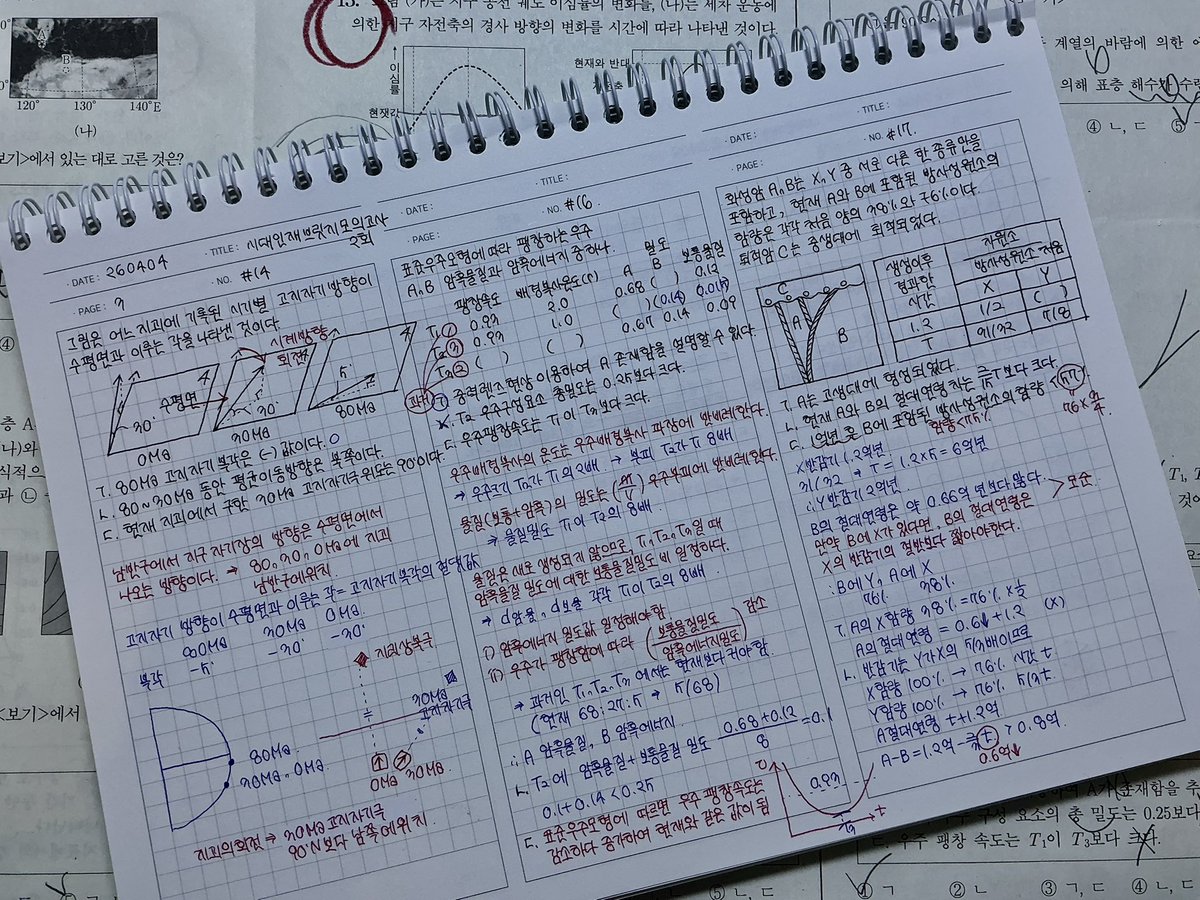 120° 130° 140°E
(나)
보기>에서 있는 대로 고른 것은?
의한 지구 자전축의 경사 방향의 변화를 시간에 따라 나타낸 것이다.
이심률
현재와 반대
계열의 바람에 의한
의해 표층 해수
④ ㄴ, ㄷ ⑤
DATE : 260404
TITLE : 시대인재 브릿지모의고사 2회
PAGE : 7
NO. #14
그림은 어느 지괴에 기록된 시기별 고지자기 방향이
수평면과 이루는 각을 나타낸 것이다.
시계방향
회전
수평면
30°
30°
5°
0Ma
30Ma
80Ma
ㄱ. 80Ma 고지자기 복각은 (-) 값이다. O
ㄴ. 80~30Ma 동안 평균이동방향은 북쪽이다.
ㄷ. 현재 지괴에서 구한 30Ma 고지자기극 위도는 90°이다.
남반구에서 지구 자기장의 방향은 수평면에서
나오는 방향이다. → 80, 30, 0Ma에 지괴
남반구에 위치
고지자기 방향이 수평면과 이루는 각 = 고지자기 복각의 절댓값
80Ma 30Ma 0Ma
복각 -5° -30° -30°
지리상북극
30Ma
고지자기극
80Ma
30Ma, 0Ma
0Ma 30Ma
지괴의 회전 → 30Ma 고지자기극
90°N보다 남쪽에 위치
DATE :
TITLE :
PAGE :
NO. #16
표준우주모형에 따라 팽창하는 우주
A, B 암흑물질과 암흑에너지 중 하나.
밀도
팽창속도 배경복사온도(K) A B 보통물질
T₁ ① 0.93 2.0 0.68 ( ) 0.12
T₂ ③ 0.93 1.0 ( ) (0.14) 0.015
T₃ ② ( ) ( ) 0.67 0.14 0.09
과거
ㄱ. 중력렌즈현상 이용하여 A 존재함을 설명할 수 있다.
ㄴ. T₂ 우주구성요소 총밀도는 0.25보다 크다.
ㄷ. 우주팽창속도는 T₁이 T₃보다 크다.
우주배경복사의 온도는 우주배경복사 파장에 반비례한다.
→ 우주크기 T₂가 T₁의 2배 → 부피 T₂가 T₁ 8배
물질(보통+암흑)의 밀도는 우주부피에 반비례한다.
→ 물질밀도 T₁이 T₂의 8배.
물질은 새로 생성되지 않으므로, T₁, T₂, T₃일 때
암흑물질 밀도에 대한 보통물질밀도 비 일정하다.
→ d암물, d보물 각각 T₁이 T₂의 8배.
i) 암흑에너지 밀도값 일정해야 함
ii) 우주가 팽창함에 따라 (보통물질밀도/암흑에너지밀도) 감소
→ 과거인 T₁, T₂, T₃에서는 현재보다 커야 함.
(현재 68:27:5 → 5/68)
∴ A 암흑물질, B 암흑에너지
ㄴ. T₂에 암흑물질+보통물질 밀도 (0.68+0.12)/8 = 0.1
0.1+0.14<0.25
0.93
ㄷ. 표준우주모형에 따르면 우주 팽창속도는
감소하다 증가하여 현재와 같은 값이 됨
DATE :
TITLE :
PAGE :
NO. #17.
화성암 A, B는 X, Y 중 서로 다른 한 종류만을
포함하고, 현재 A와 B에 포함된 방사성원소의
함량은 각각 처음 양의 38%와 76%이다.
퇴적암 C는 중생대에 퇴적되었다.
C
A
B
생성이후 경과한 시간
자원소
방사성원소 처음
X Y
1.2 1/2 ( )
T 31/32 7/8
ㄱ. A는 고생대에 형성되었다.
X반감기 1.2억년
31/32 → T = 1.2×5 = 6억년
∴ Y반감기 2억년
B의 절대연령은 약 0.66억 년보다 많다.
만약 B에 X가 있다면, B의 절대연령은
X의 반감기의 절반보다 짧아야한다.
모순
∴ B에 Y, A에 X
76% 38%
ㄱ. A의 X함량 38% = 76% × 1/2
A의 절대연령 = 0.6↓ + 1.2 (X)
ㄴ. 반감기는 Y가 X의 5/3배이므로
X함량 100% → 76% 시간 t
Y함량 100% → 76% 5/3t
A절대연령 t+1.2억
0.6억↓
<보기>에서
구성 요소의 총 밀도는 0.25보다
ㄷ. 우주 팽창 속도는 T₁이 T₃보다 크다.
① ㄱ ② ㄴ ③ ㄱ, ㄷ ④ ㄴ, ㄷ
⑤ ㄴ, ㄷ